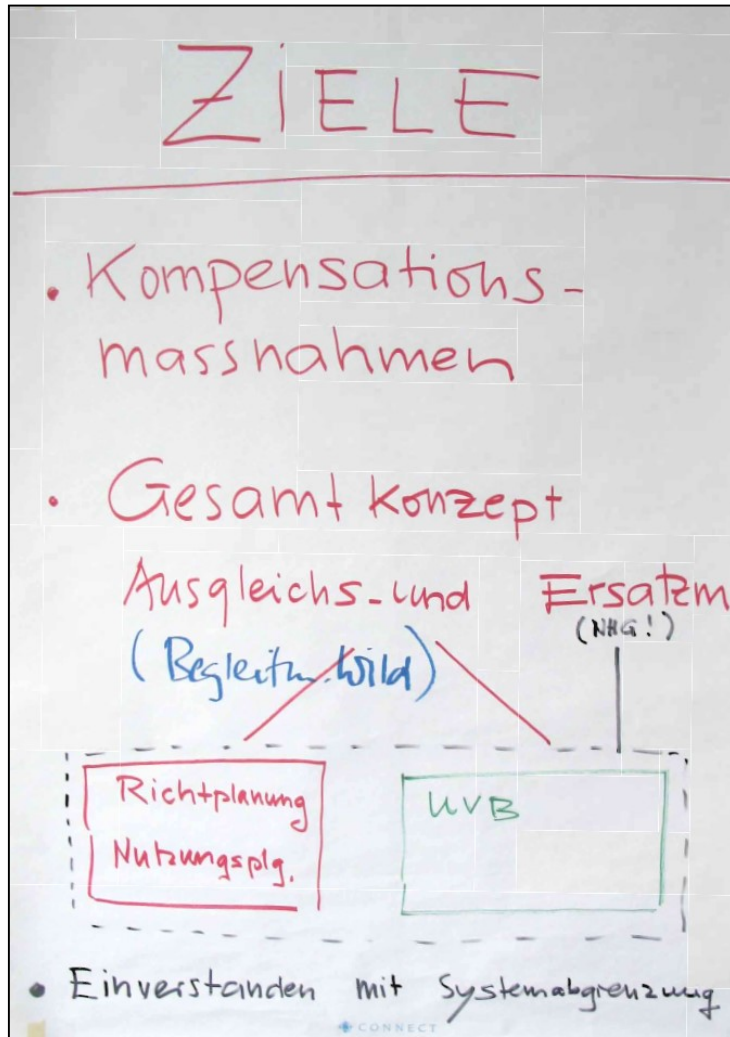 ZIELE
• Kompensations-
massnahmen
• Gesamtkonzept
Ausgleichs- und Ersatzm
(NHG!)
(Begleitm. Wild)
Richtplanung
Nutzungsplg.
UVB
• Einverstanden mit Systemabgrenzung
CONNECT